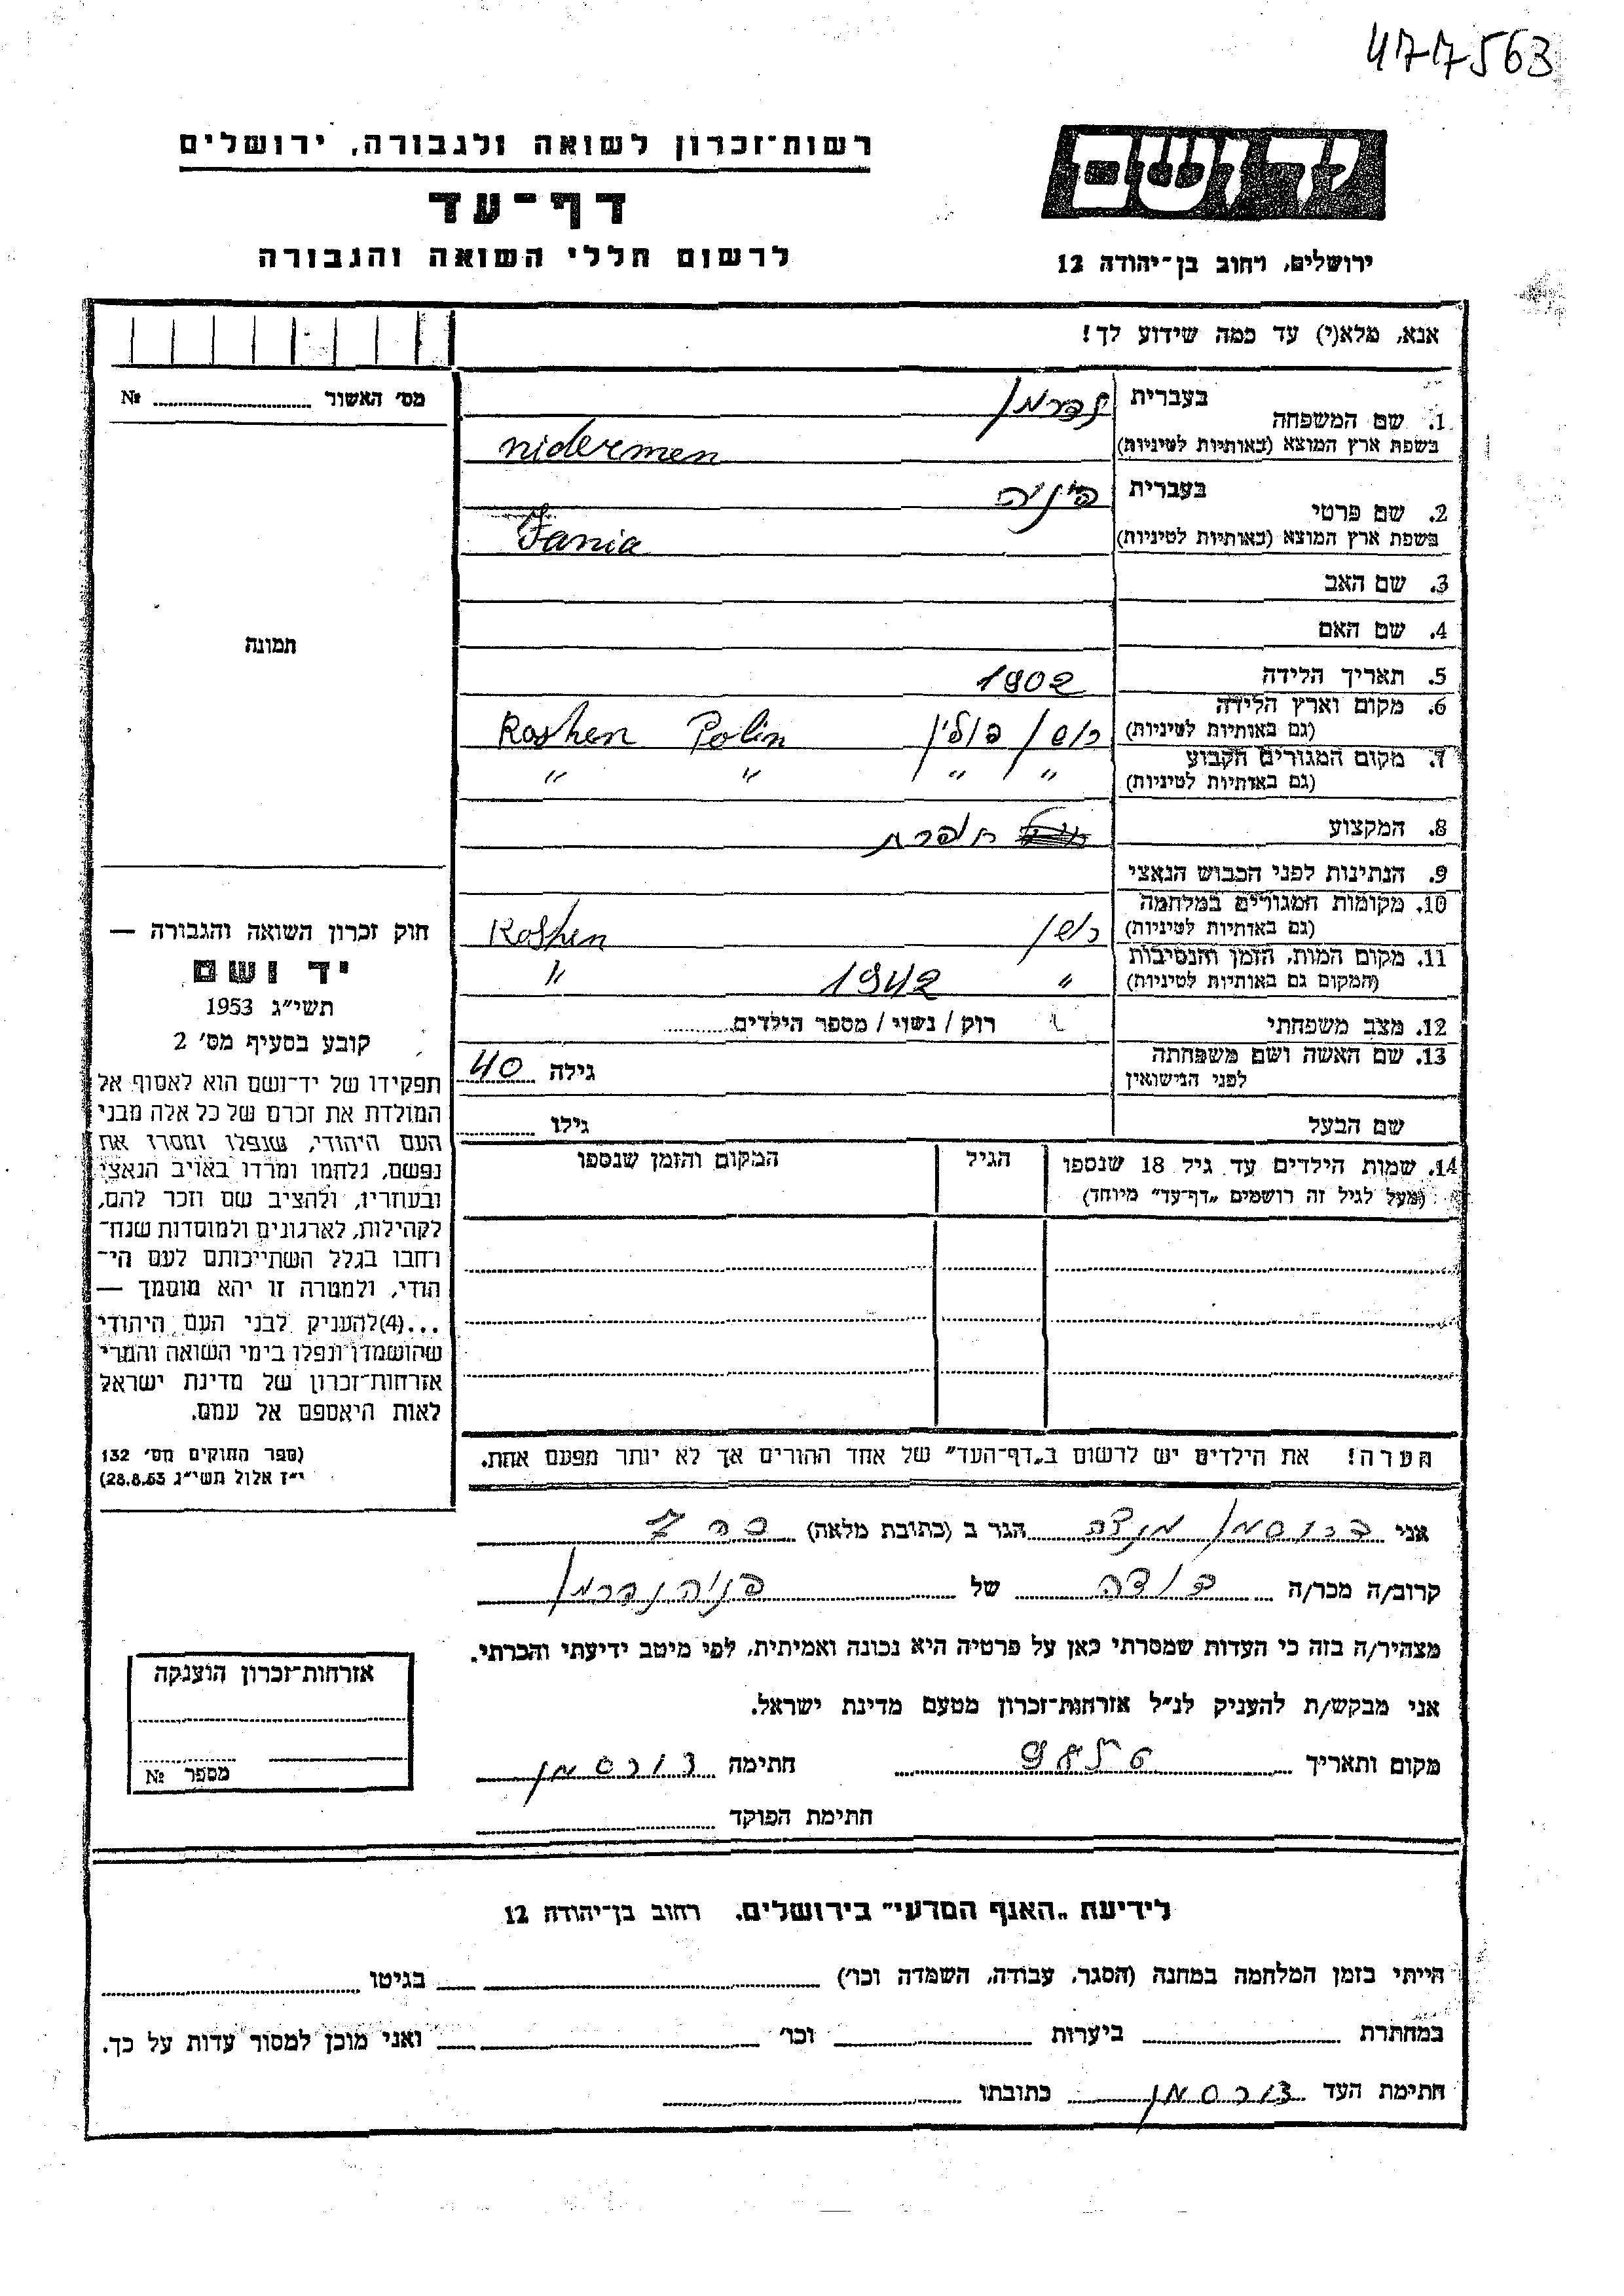 477563
רשות־זכרון לשואה ולגבורה, ירושלים
דף־עד
לרשום חללי השואה והגבורה
יד ושם
ירושלים, רחוב בן־יהודה 12
אנא, מלא(י) עד כמה שידוע לך!
מס׳ האשור № ............
תמונה
1. שם המשפחה
בעברית נדרמן
בשפת ארץ המוצא (באותיות לטיניות) nidermen
2. שם פרטי
בעברית
בשפת ארץ המוצא (באותיות לטיניות) Fania
3. שם האב
4. שם האם
5. תאריך הלידה 1902
6. מקום וארץ הלידה
(גם באותיות לטיניות) פולין Roshen Polin
7. מקום המגורים הקבוע
(גם באותיות לטיניות) " " " "
8. המקצוע תופרת
9. הנתינות לפני הכבוש הנאצי
10. מקומות המגורים במלחמה
(גם באותיות לטיניות) Roshen
11. מקום המות, הזמן והנסיבות
(המקום גם באותיות לטיניות) " 1942 "
12. מצב משפחתי רוק / נשוי / מספר הילדים............
13. שם האשה ושם משפחתה
לפני הנישואין גילה 40
שם הבעל גילו ............
14. שמות הילדים עד גיל 18 שנספו הגיל המקום והזמן שנספו
(מעל לגיל זה רושמים „דף־עד” מיוחד)
חוק זכרון השואה והגבורה —
יד ושם
תשי״ג 1953
קובע בסעיף מס׳ 2
תפקידו של יד־ושם הוא לאסוף אל
המולדת את זכרם של כל אלה מבני
העם היהודי, שנפלו ומסרו את
נפשם, נלחמו ומרדו באויב הנאצי
ובעוזריו, ולהציב שם וזכר להם,
לקהילות, לארגונים ולמוסדות שנח־
רחבו בגלל השתייכותם לעם הי־
הודי, ולמטרה זו יהא מוסמך —
...(4)להעניק לבני העם היהודי
שהושמדו ונפלו בימי השואה והמרי
אזרחות־זכרון של מדינת ישראל
לאות היאספם אל עמם.
(ספר החוקים מס׳ 132
י״ז אלול תשי״ג 28.8.53)
הערה! את הילדים יש לרשום ב„דף־העד” של אחד ההורים אך לא יותר מפעם אחת.
אני הגר ב (כתובת מלאה)
קרוב/ה מכר/ה דודה של פניה נדרמן
מצהיר/ה בזה כי העדות שמסרתי כאן על פרטיה היא נכונה ואמיתית, לפי מיטב ידיעתי והכרתי.
אני מבקש/ת להעניק לנ״ל אזרחות־זכרון מטעם מדינת ישראל.
מקום ותאריך חתימה
חתימת הפוקד
אזרחות־זכרון הוענקה
מספר №
לידיעת „האגף המדעי” בירושלים, רחוב בן־יהודה 12
הייתי בזמן המלחמה במחנה (הסגר, עבודה, השמדה וכו׳) בגיטו
במחתרת ביערות וכו׳ ואני מוכן למסור עדות על כך.
חתימת העד כתובתו